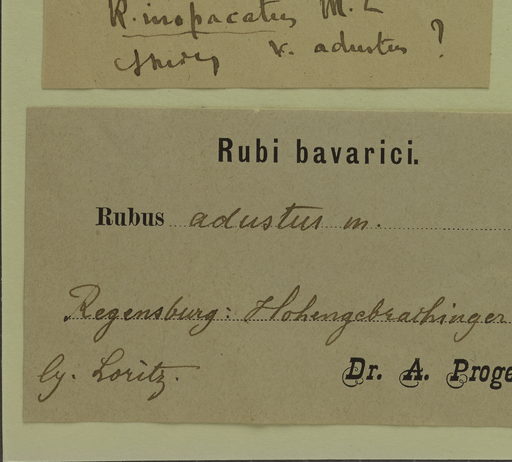 R. inopacatus M. L
v. adustus ?
Rubi bavarici.
Rubus adustus m.
Regensburg: Hohengebrachinger
lg. Loritz.
Dr. A. Proge